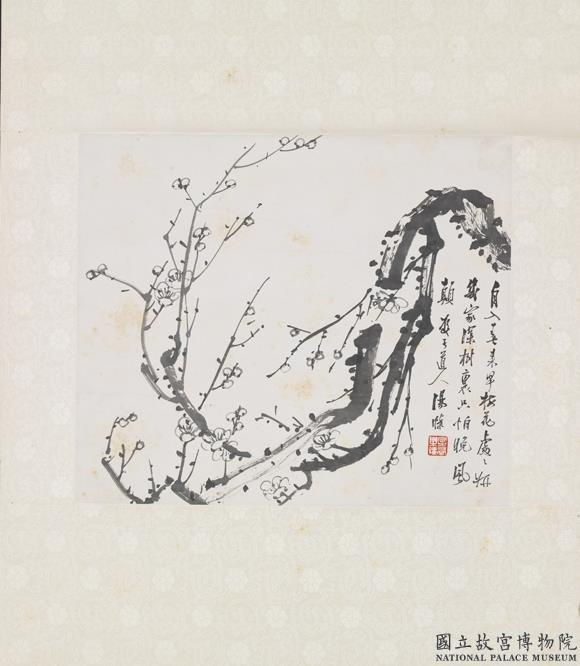 自入春来早梅花處〻妍
幾家深樹裏只怕晚風
顛雙于道人湯滌
國立故宮博物院
NATIONAL PALACE MUSEUM